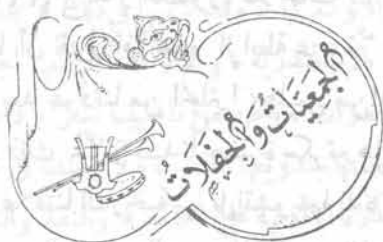 الجمعيَات وَالحَفلَاتُ